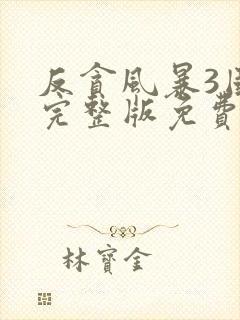 反貪風暴3
完整版免費
林寶金